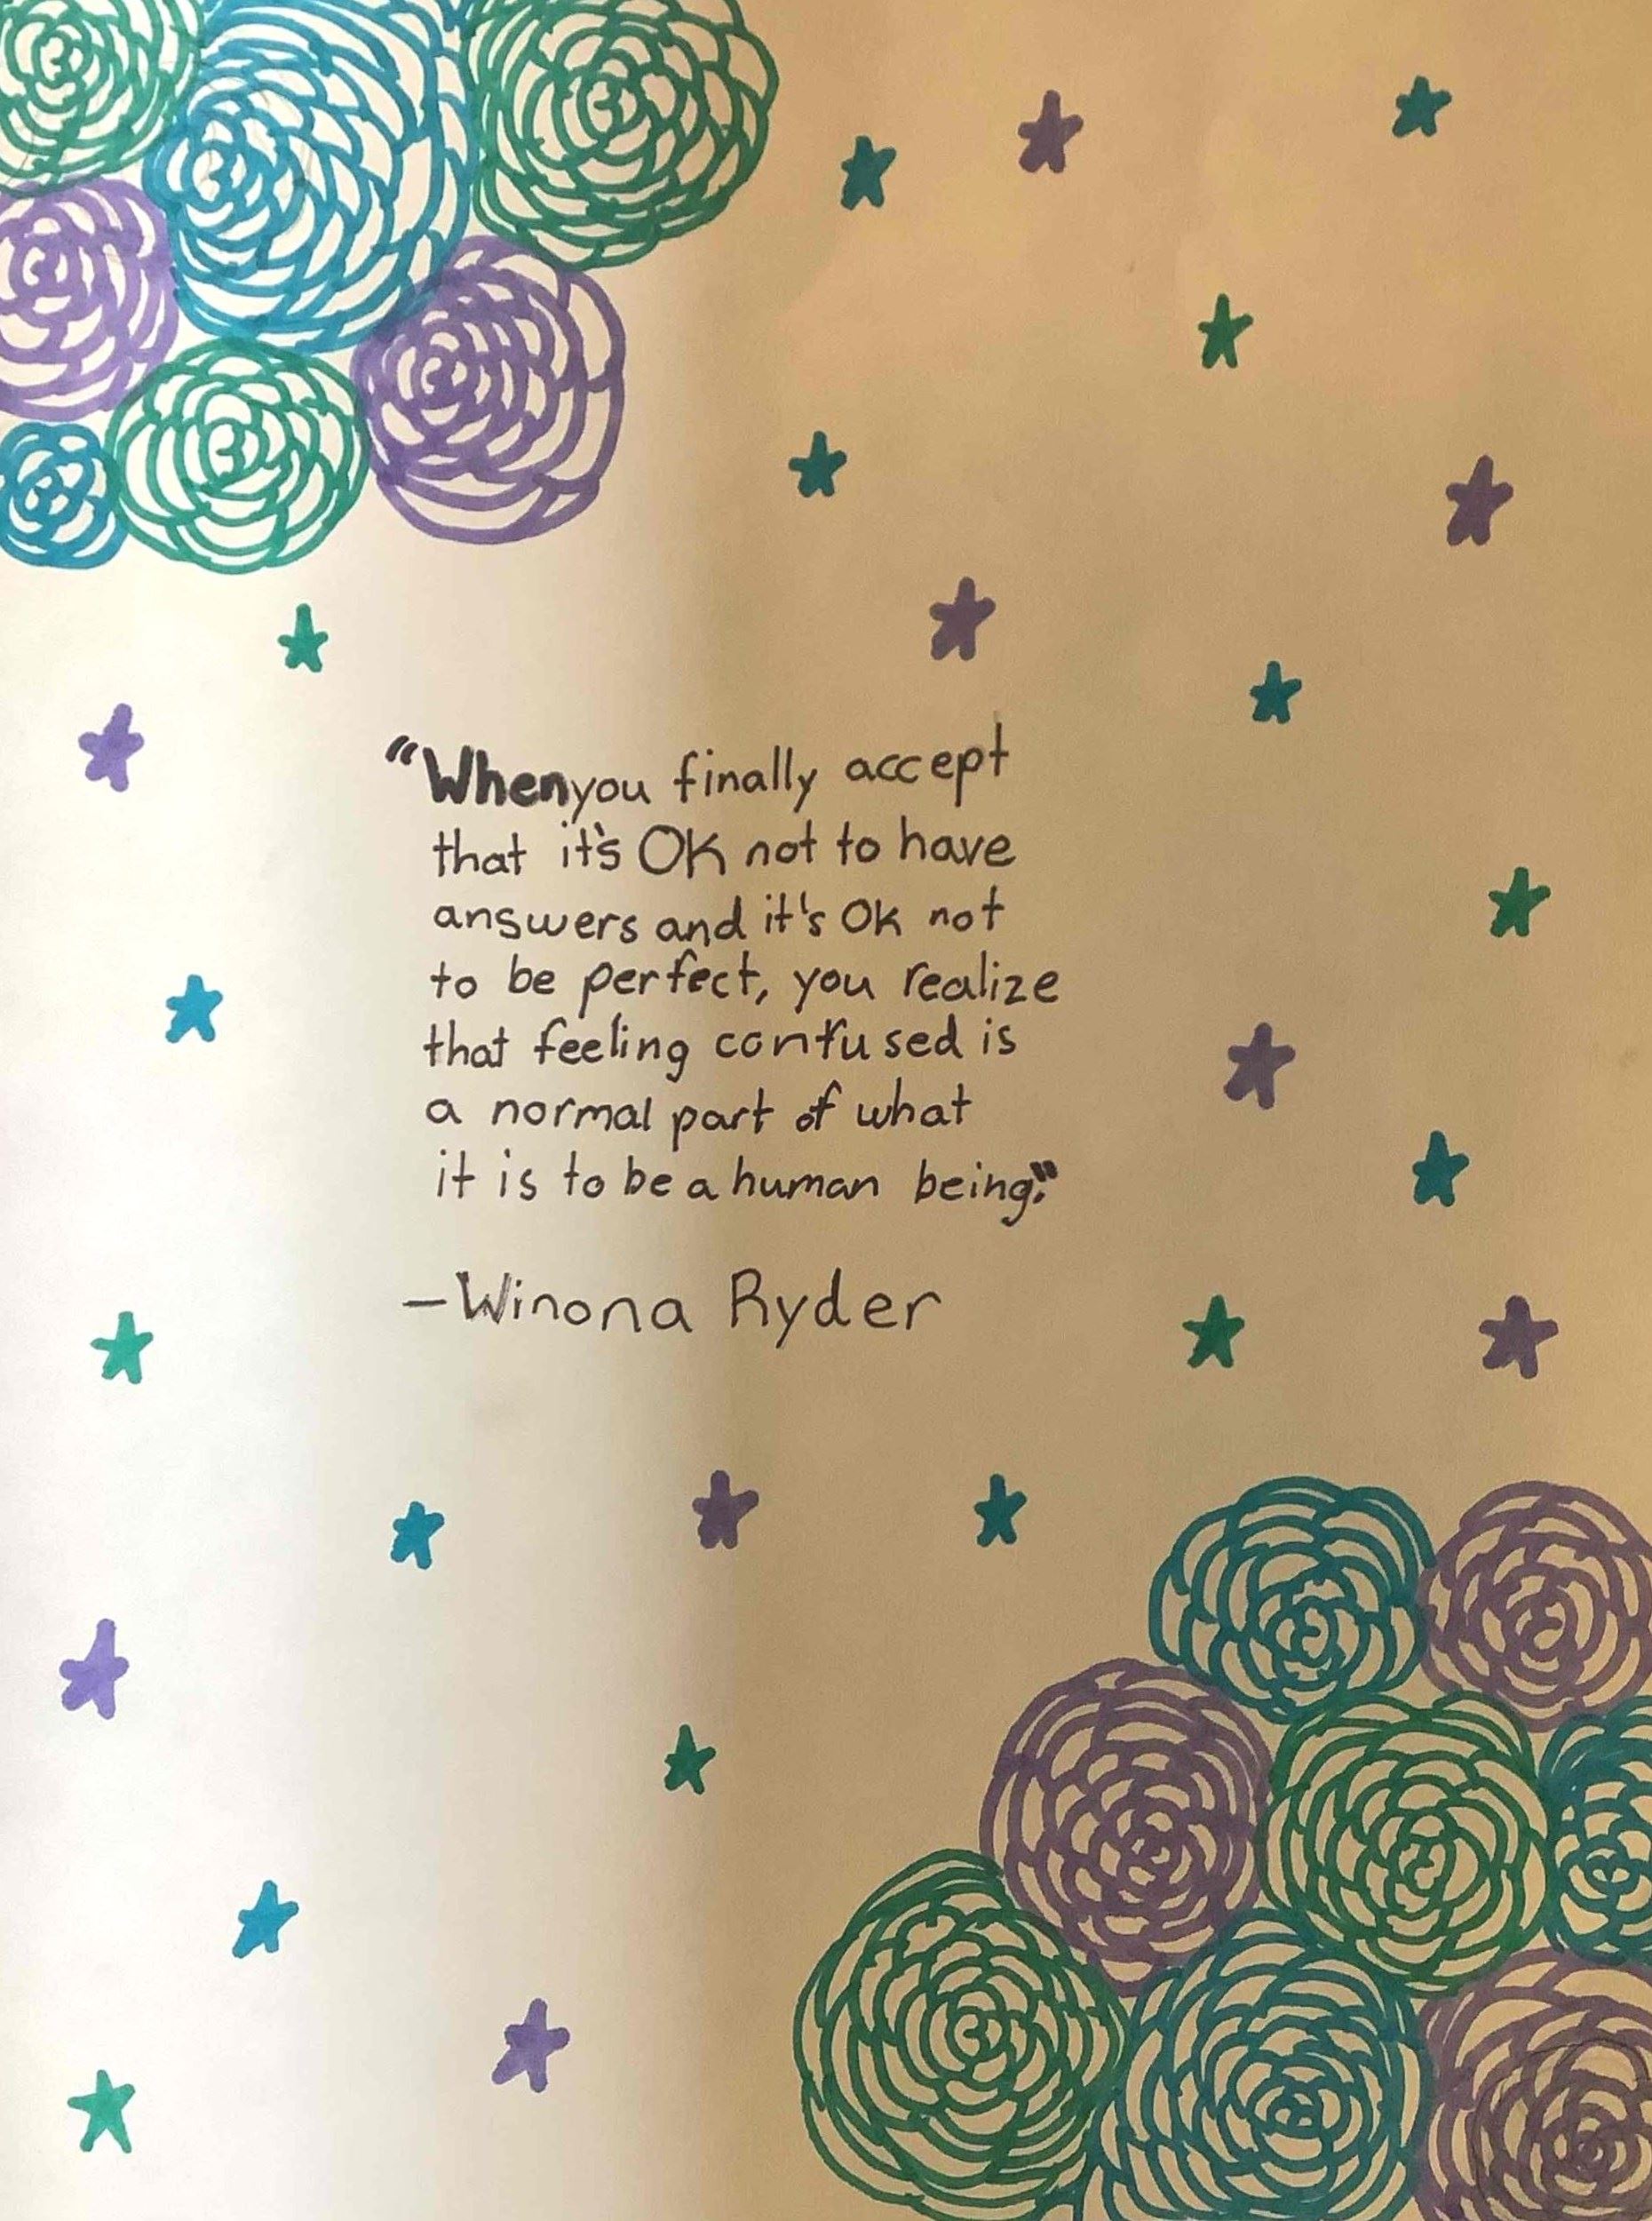 “When you finally accept
that it's OK not to have
answers and it's OK not
to be perfect, you realize
that feeling confused is
a normal part of what
it is to be a human being.”
—Winona Ryder